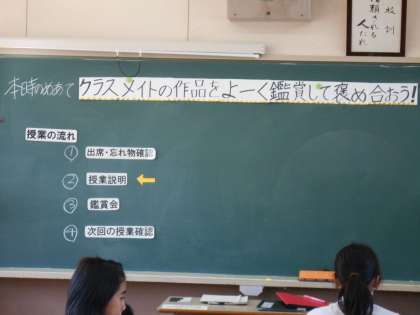 校訓
信頼される
人たれ
本時のめあて クラスメイトの作品をよーく鑑賞して褒め合おう!
授業の流れ
① 出席・忘れ物確認
② 授業説明
③ 鑑賞会
④ 次回の授業確認